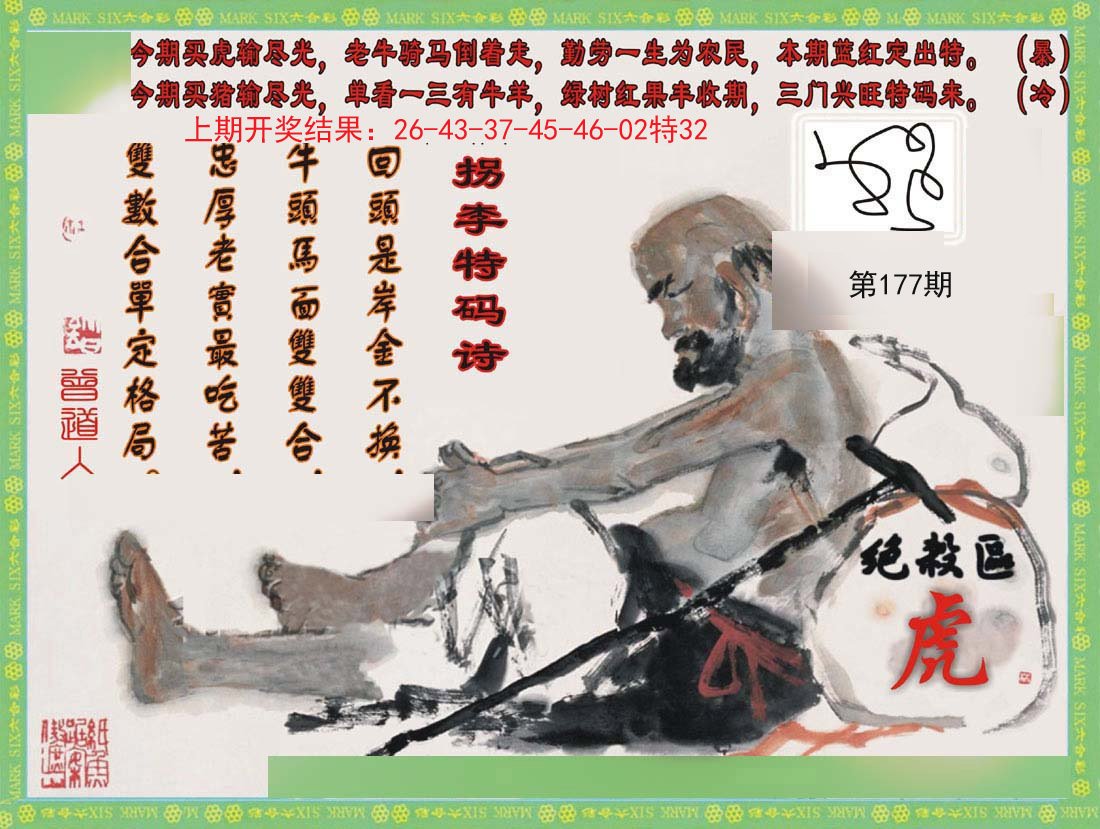 MARK SIX六合彩
今期买虎输尽光，老牛骑马倒着走，勤劳一生为农民，本期蓝红定出特。（暴）
今期买猪输尽光，单看一三有牛羊，绿村红果丰收期，三门兴旺特码来。（冷）
上期开奖结果：26-43-37-45-46-02特32
第177期
拐李特码诗
回頭是岸金不换，
牛頭馬面雙雙合，
忠厚老實最吃苦，
雙數合單定格局。
曾道人
绝殺區
虎